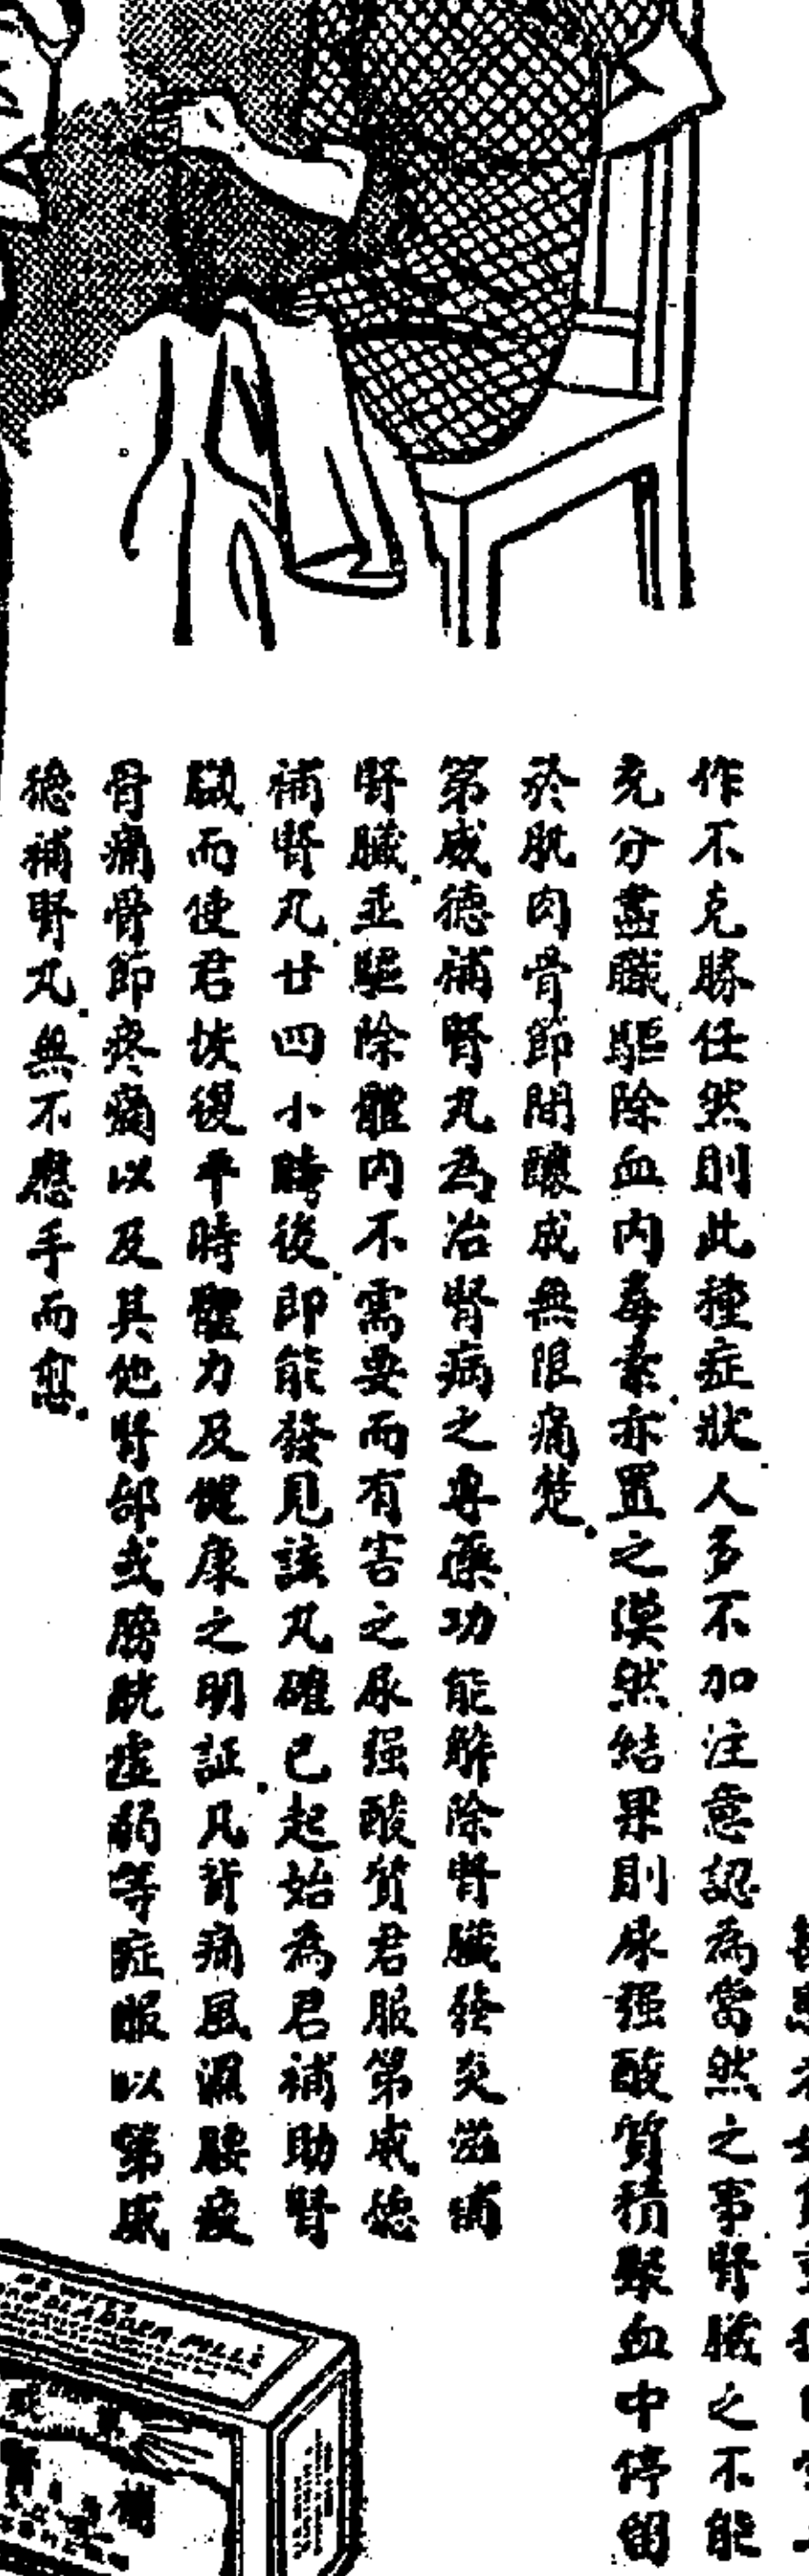 作不克勝任然則此種症狀人多不加注意認為當然之事腎臟之不能
充分盡職驅除血内毒素亦置之漠然結果則尿强酸質積聚血中停留
於肌肉骨節間釀成無限痛楚
第威德補腎丸為治腎病之專藥功能解除腎臟發炎滋補
腎臟並驅除體内不需要而有害之尿强酸質君服第威德
補腎丸廿四小時後即能發見該丸確已起始為君補助腎
臟而使君恢復平時體力及健康之明証凡背痛風濕腰痠
骨痛骨節疼痛以及其他腎部或膀胱虚弱等症服以第威
德補腎丸無不應手而愈
PILLS
補